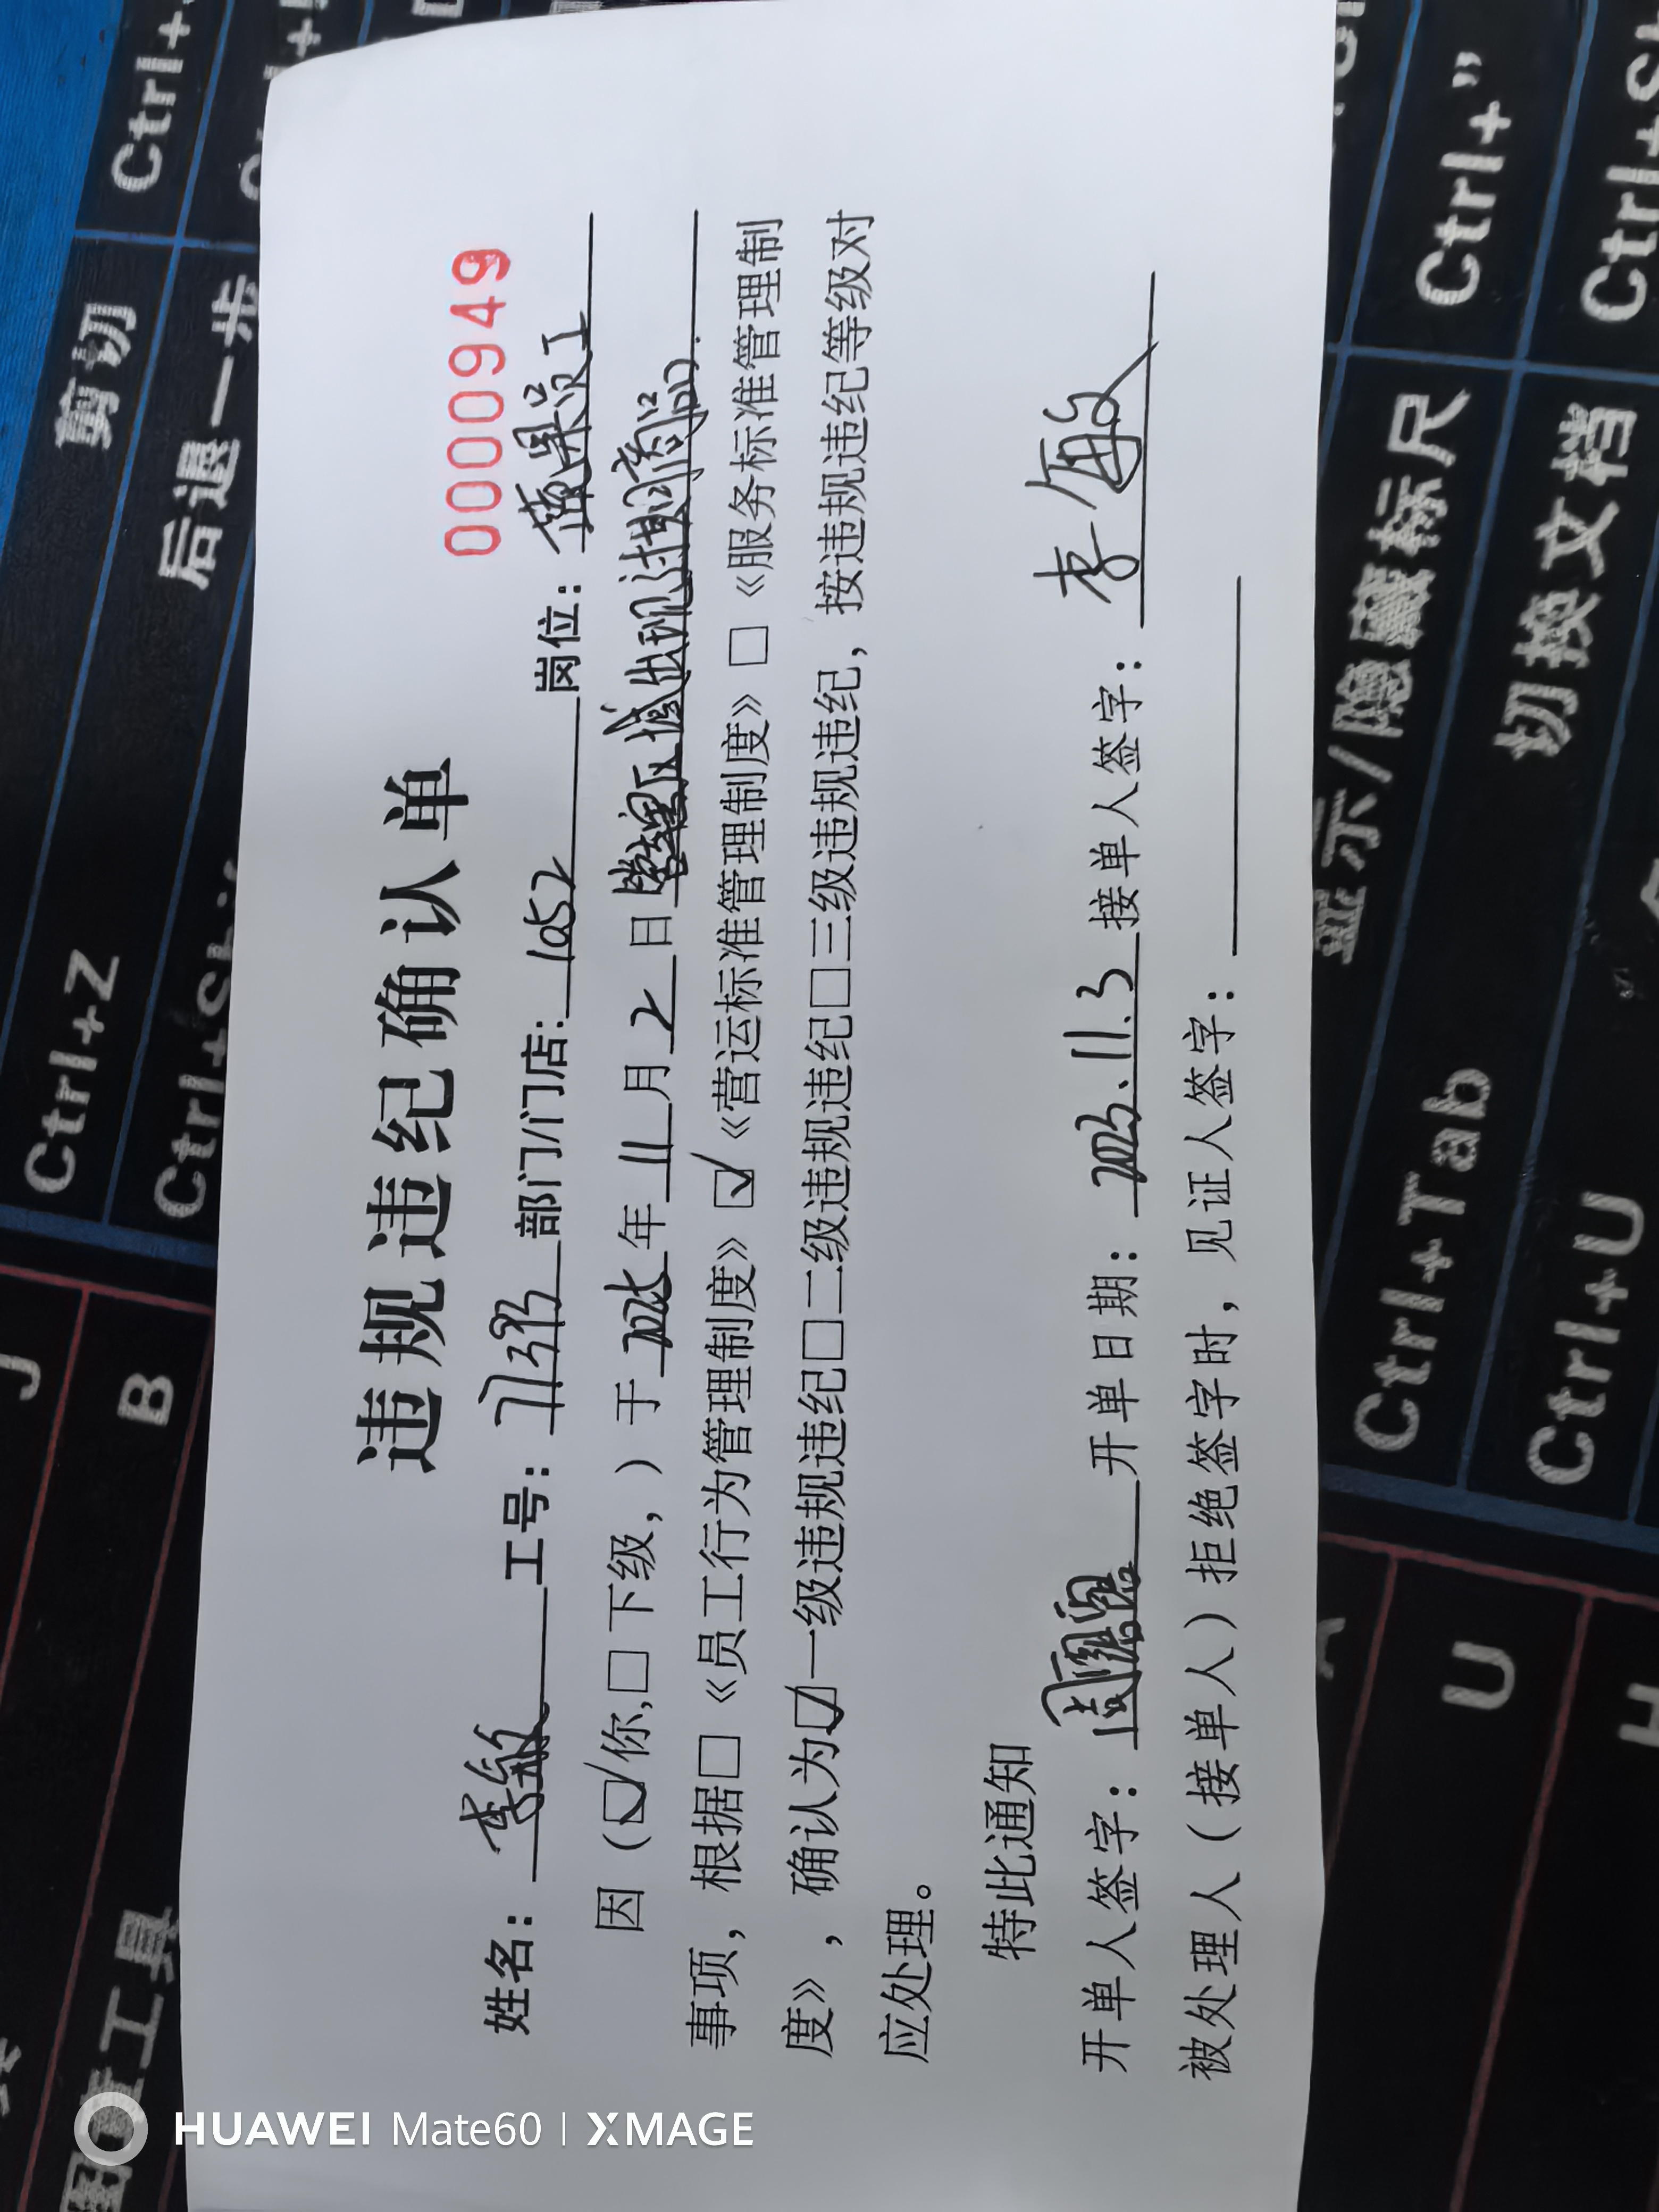 违规违纪确认单
0000949
姓名：李敏 工号： 部门/门店：1052 岗位：蔬果员工
因（☑你,□下级,）于 年11月2日管理区域出现过期商品.
事项，根据□《员工行为管理制度》☑《营运标准管理制度》□《服务标准管理制
度》，确认为☑一级违规违纪□二级违规违纪□三级违规违纪，按违规违纪等级对
应处理。
特此通知
开单人签字： 开单日期：2023.11.3 接单人签字：李敏
被处理人（接单人）拒绝签字时，见证人签字：
Ctrl+Z
剪切
后退一步
Ctrl+"
显示/隐藏标尺
Ctrl+Tab
切换文档
Ctrl+U
B
U
HUAWEI Mate60 | XMAGE